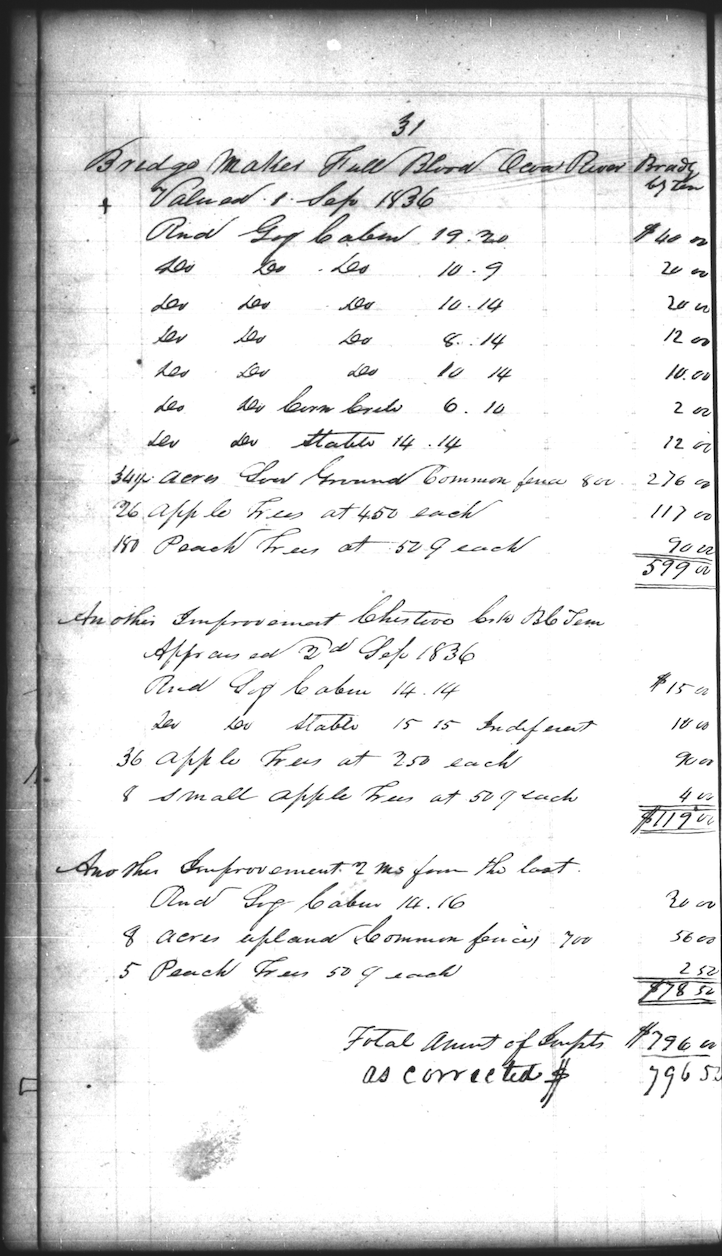 31
Bridge Maker Full Blood Ocoa River Brady
by Ten
Valued 1 Sep 1836
Rnd Log Cabin 19.20 $40 00
Do Do Do 10.9 20 00
Do Do Do 10.14 20 00
Do Do Do 8.14 12 00
Do Do Do 10 14 10.00
Do Do Corn Crib 6.10 2 00
Do Do Stable 14.14 12 00
34½ Acres Low Ground Common fence 800 276 00
26 Apple Trees at 450 each 117 00
180 Peach Trees at 50 ¢ each 90 00
599 00
Another Improvement Chestooo Crk Ten
Appraised 2d Sep 1836
Rnd Log Cabin 14.14 $15 00
Do Do Stable 15 15 Indiferent 10 00
36 Apple Trees at 250 each 90 00
8 small apple Trees at 50 ¢ each 4 00
$119.00
Another Improvement 2 ms from the last.
Rnd Log Cabin 14.16 20 00
8 acres upland Common fence 700 56 00
5 Peach Trees 50 ¢ each 2 50
$78 50
Total Amnt of Impts $796 00
as corrected $ 796 50